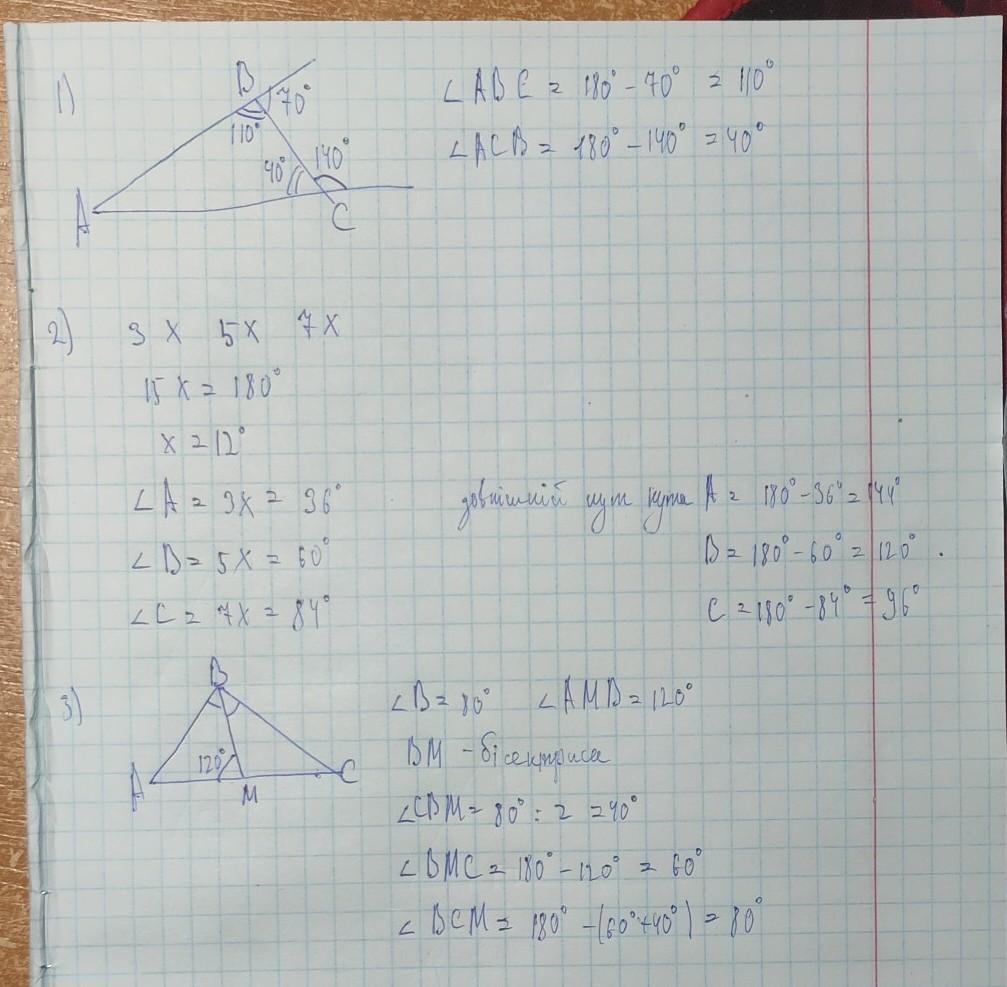 1)
B
70°
110°
40° 140°
A
C
∠ABC = 180° - 70° = 110°
∠ACB = 180° - 140° = 40°
2) 3x 5x 7x
15x = 180°
x = 12°
∠A = 3x = 36° зовнішній кут кута A = 180° - 36° = 144°
∠B = 5x = 60° B = 180° - 60° = 120°.
∠C = 7x = 84° C = 180° - 84° = 96°
3)
B
120°
A
M
C
∠B = 80° ∠AMB = 120°
BM - бісектриса
∠CBM = 80° : 2 = 40°
∠BMC = 180° - 120° = 60°
∠BCM = 180° - (60° + 40°) = 80°